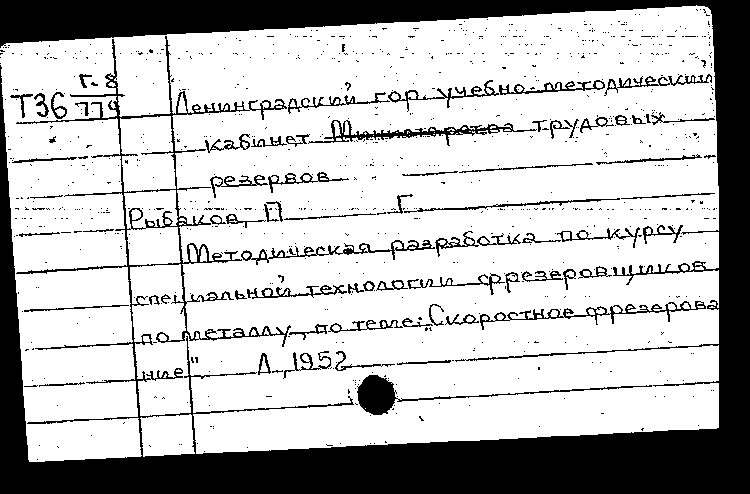 Г-8
Т36 779
Ленинградский гор. учебно-методический
кабинет Министерства трудовых
резервов
Рыбаков, П Г.
Методическая разработка по курсу
специальной технологии фрезеровщиков
по металлу, по теме: „Скоростное фрезерова
ние". Л., 1952